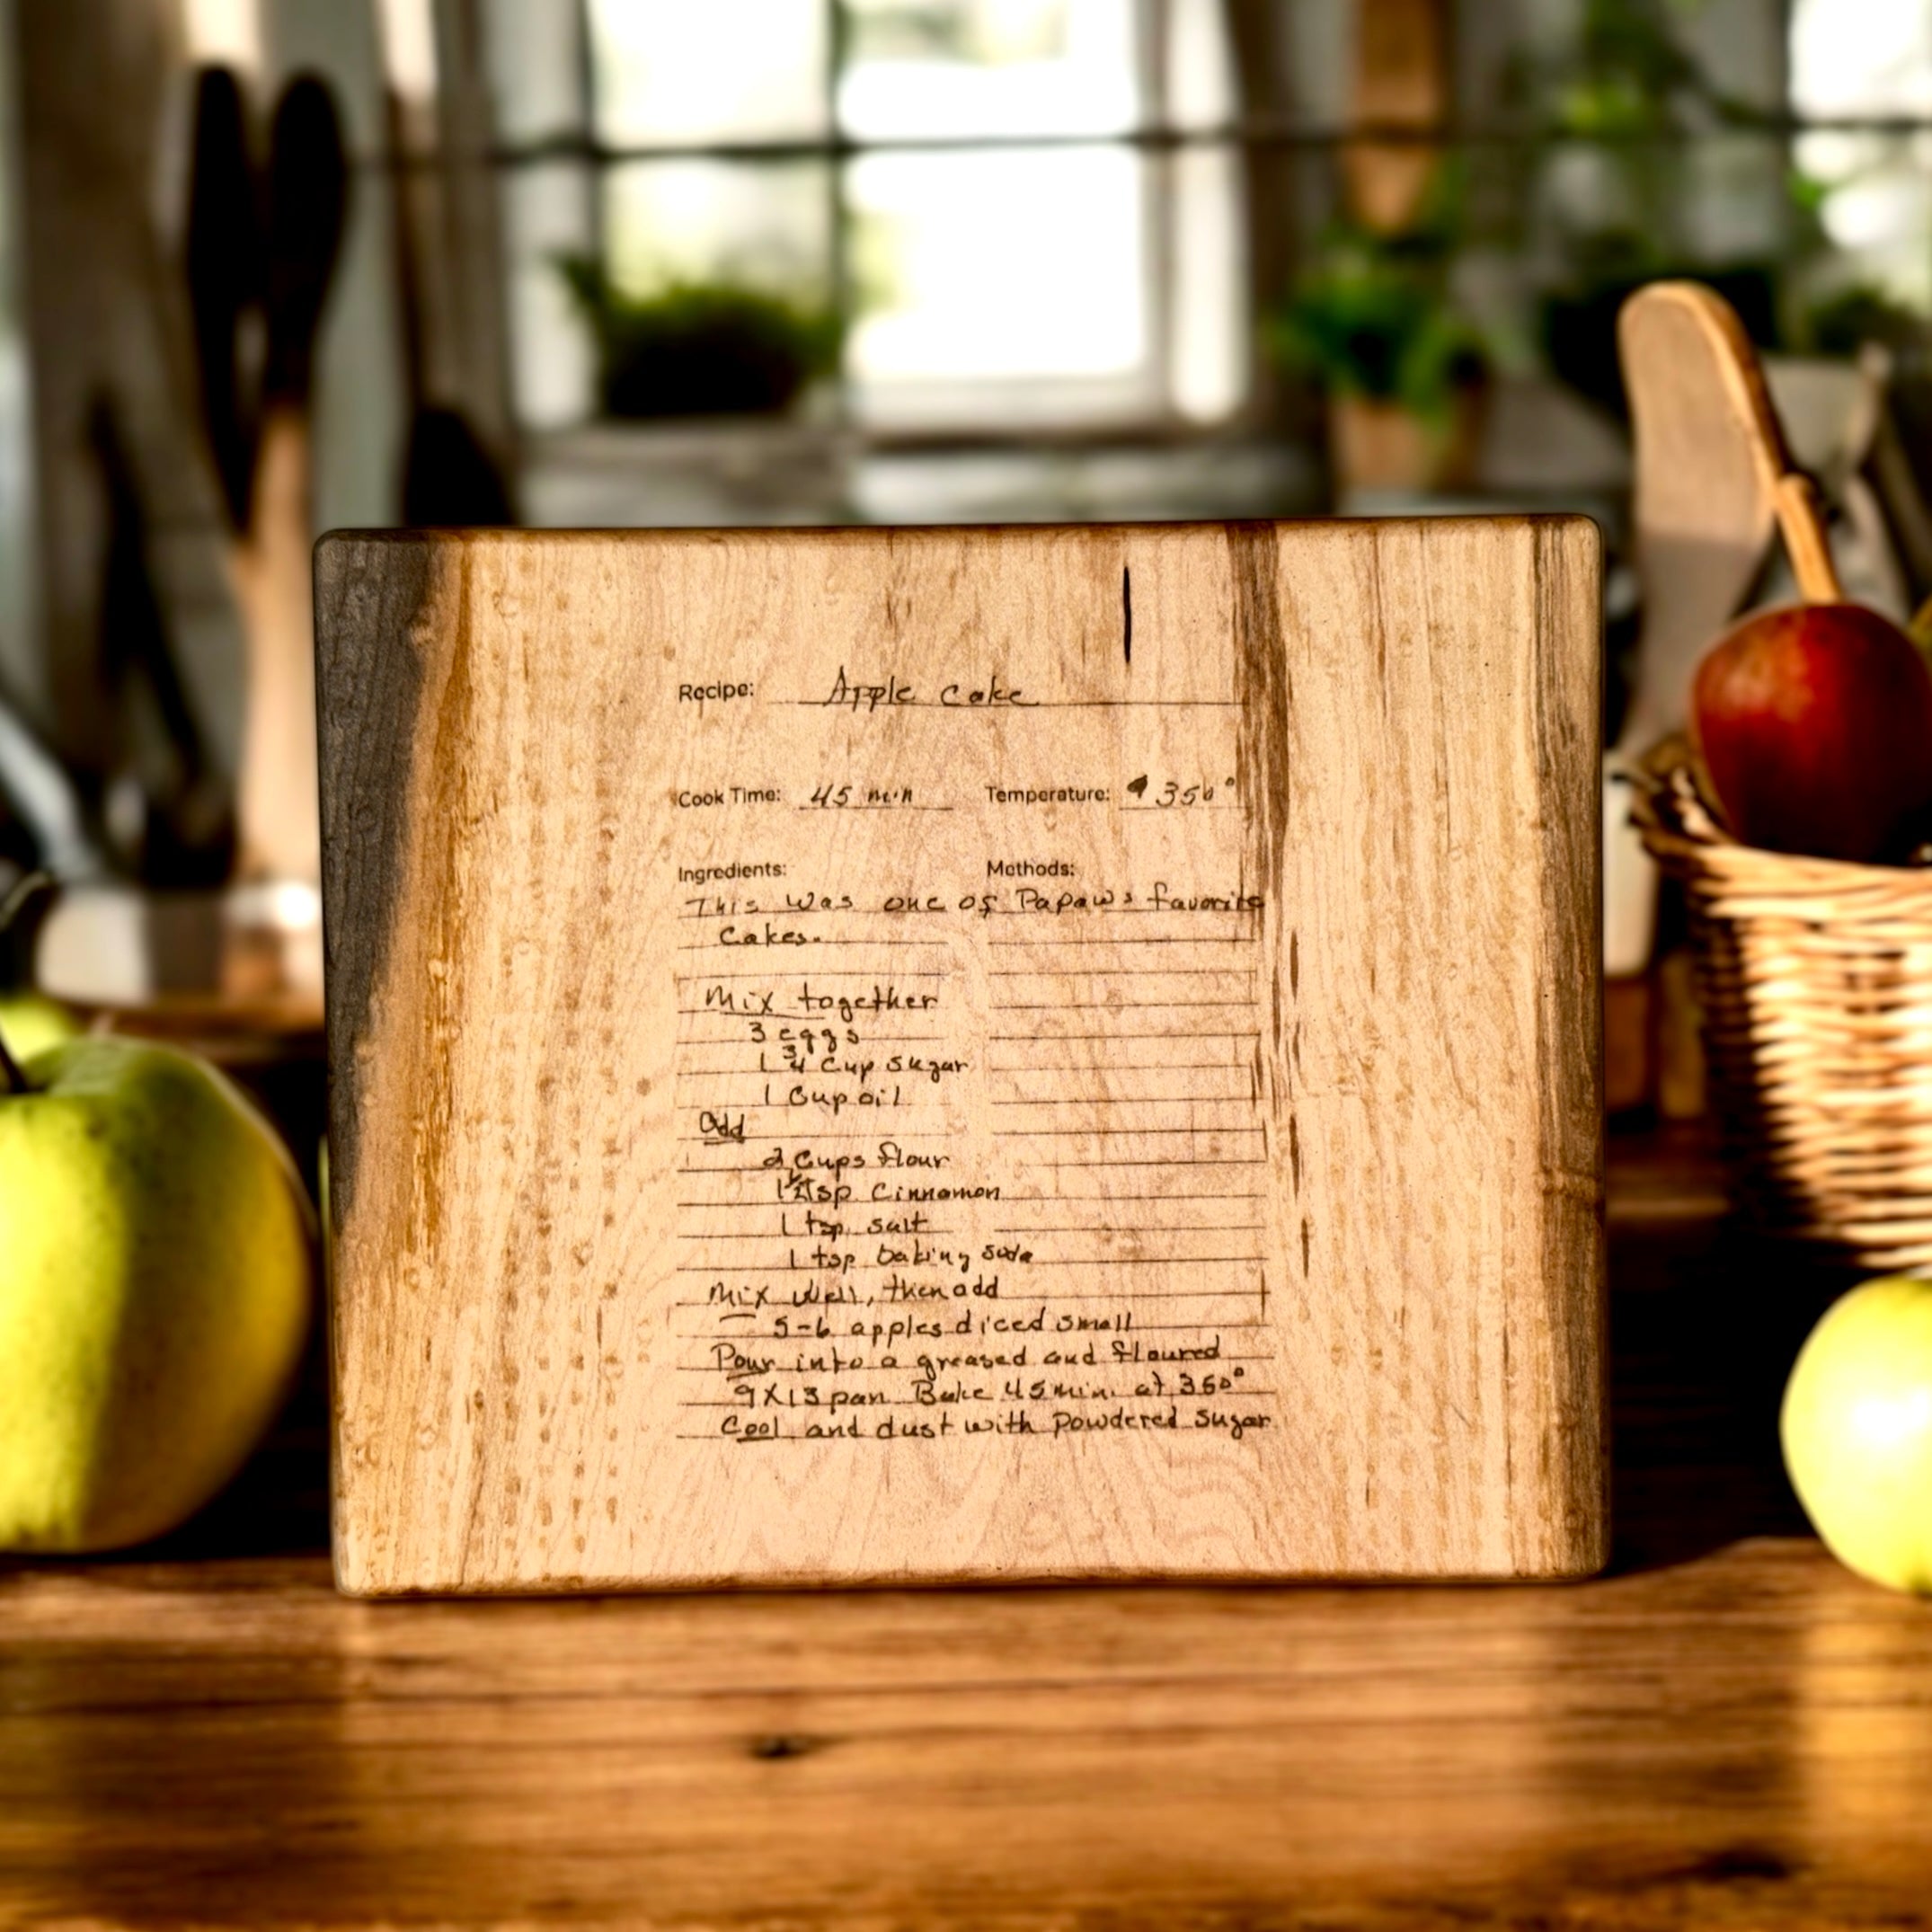 Recipe: Apple cake
Cook Time: 45 min Temperature: 350°
Ingredients: Methods:
This was one of Papaws favorite
Cakes.
Mix together
3 eggs
1 3/4 Cup sugar
1 Cup oil
Add
2 Cups flour
1 1/2 tsp cinnamon
1 tsp salt
1 tsp baking soda
Mix well, then add
5-6 apples diced small
Pour into a greased and floured
9X13 pan Bake 45 min. at 350°
Cool and dust with powdered sugar